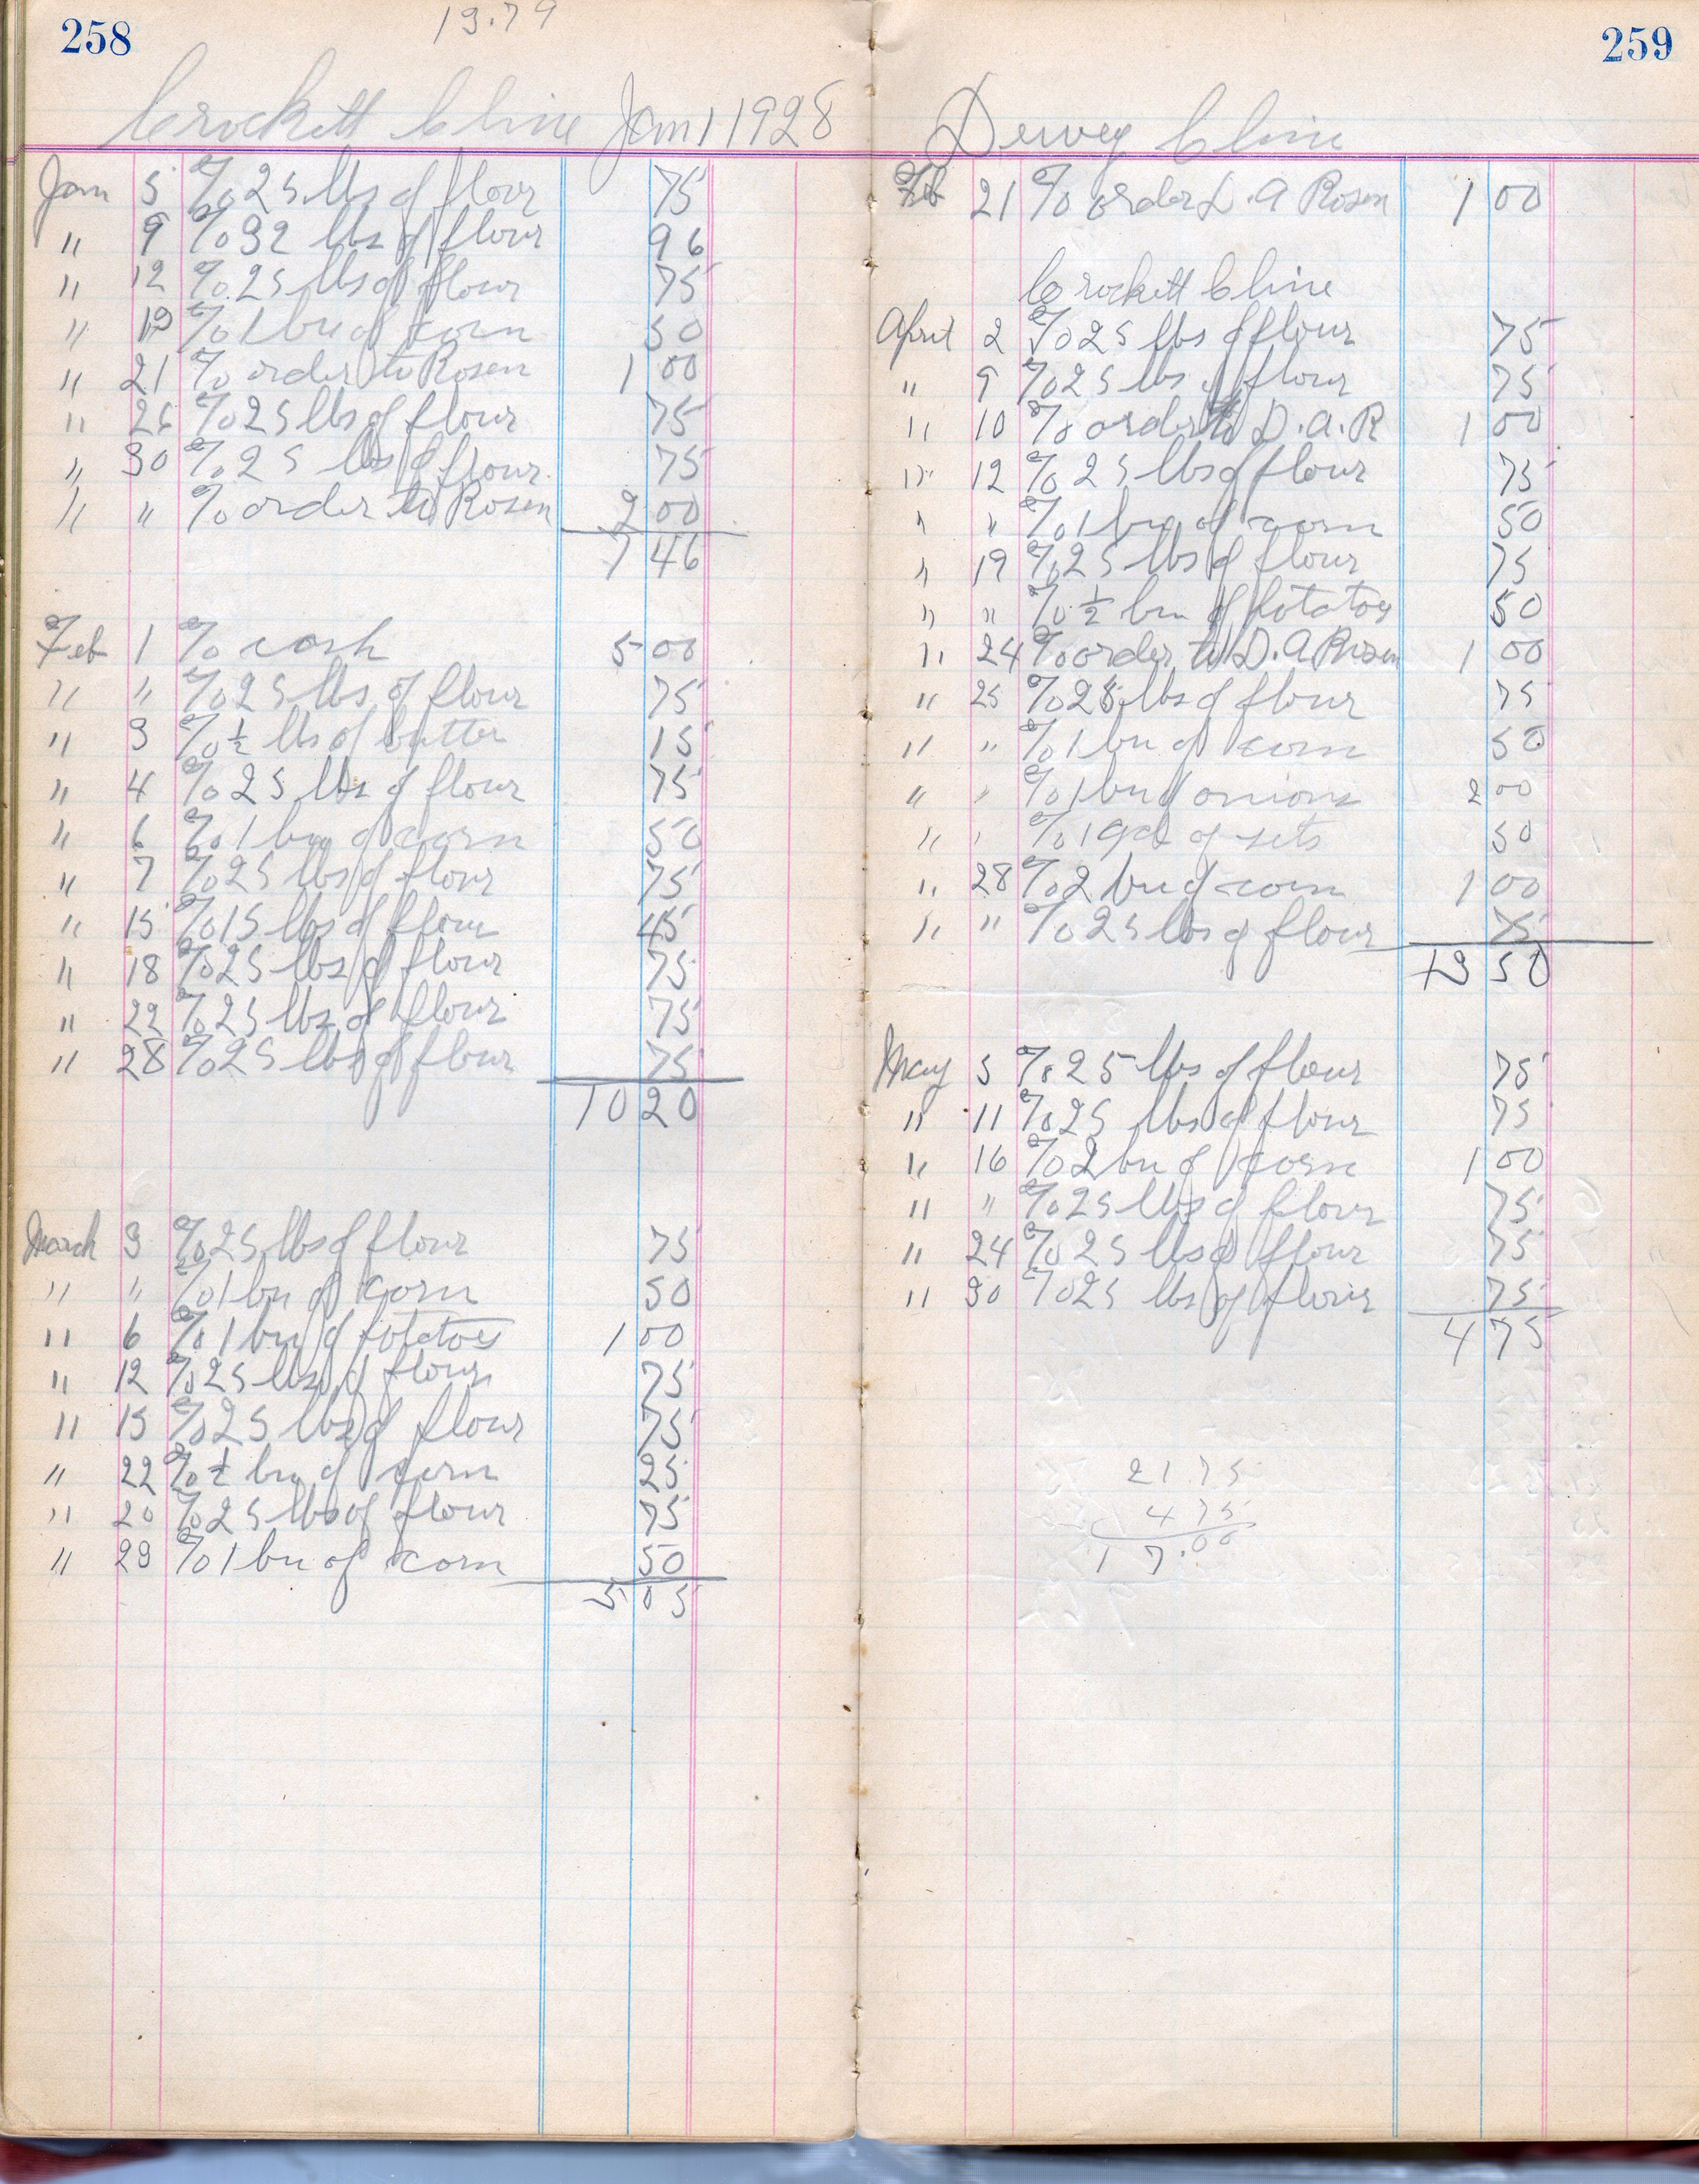 258
13.79
Crockett Cline Jan 1 1928
Jan 5 % 25 lbs of flour 75
" 9 % 32 lbs of flour 96
" 12 % 25 lbs of flour 75
" 19 % 1 bu of corn 50
" 21 % order to Rosen 1 00
" 26 % 25 lbs of flour 75
" 30 % 25 lbs of flour 75
" " % order to Rosen 2 00
7 46
Feb 1 % cash 5 00
" " % 25 lbs of flour 75
" 3 % ½ lbs of butter 15
" 4 % 25 lbs of flour 75
" 6 % 1 bu of corn 50
" 7 % 25 lbs of flour 75
" 15 % 15 lbs of flour 45
" 18 % 25 lbs of flour 75
" 22 % 25 lbs of flour 75
" 28 % 25 lbs of flour 75
10 20
March 3 % 25 lbs of flour 75
" " % 1 bu of corn 50
" 6 % 1 bu of potatoes 1 00
" 12 % 25 lbs of flour 75
" 15 % 25 lbs of flour 75
" 22 % ½ bu of corn 25
" 20 % 25 lbs of flour 75
" 29 % 1 bu of corn 50
5 05
259
Dewey Cline
Feb 21 % order D. A Rosen 1 00
Crockett Cline
April 2 % 25 lbs of flour 75
" 9 % 25 lbs of flour 75
" 10 % order to D. A. R 1 00
" 12 % 25 lbs of flour 75
" " % 1 bu of corn 50
" 19 % 25 lbs of flour 75
" " % ½ bu of potatoes 50
" 24 % order to D. A Rosen 1 00
" 25 % 25 lbs of flour 75
" " % 1 bu of corn 50
" " % 1 bu of onions 2 00
" " % 1 gal of sets 50
" 28 % 2 bu of corn 1 00
" " % 25 lbs of flour 75
13 50
May 5 % 25 lbs of flour 75
" 11 % 25 lbs of flour 75
" 16 % 2 bu of corn 1 00
" " % 25 lbs of flour 75
" 24 % 25 lbs of flour 75
" 30 % 25 lbs of flour 75
4 75
21 75
4 75
17.00